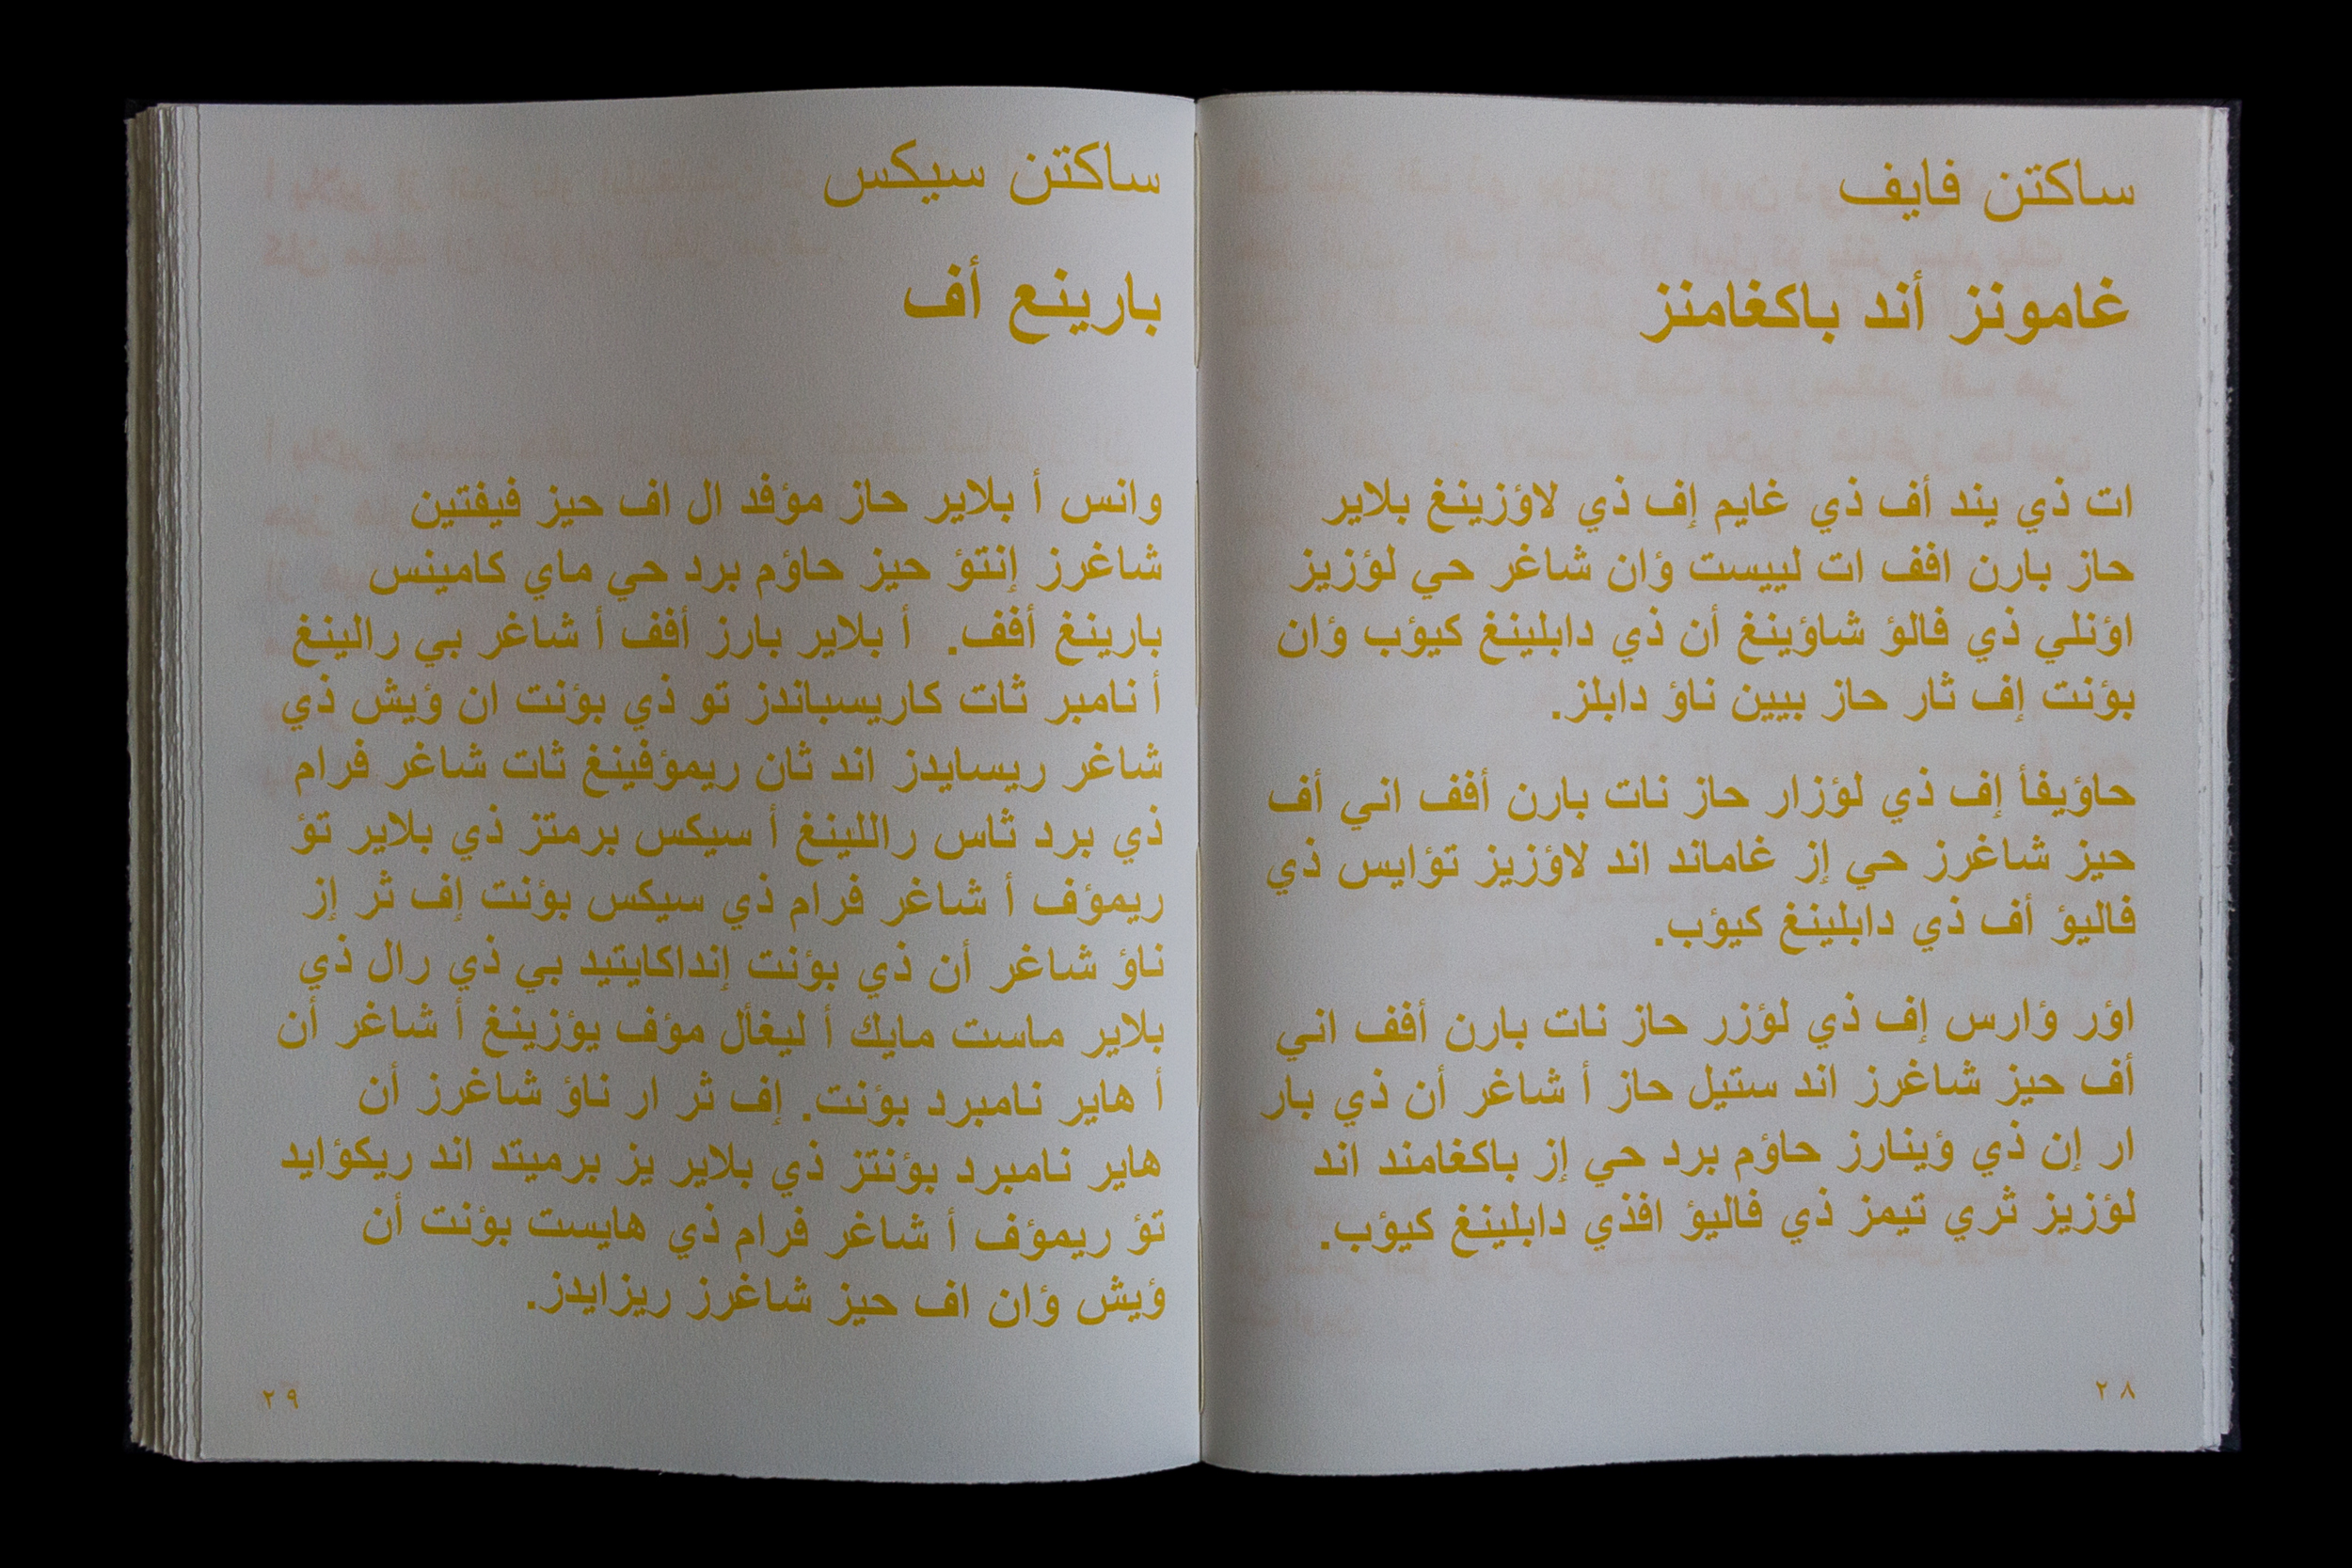 ساكتن فايف
غامونز أند باكغامنز
ات ذي يند أف ذي غايم إف ذي لاؤزينغ بلاير
حاز بارن افف ات لييست ؤان شاغر حي لؤزيز
اؤنلي ذي فالؤ شاؤينغ أن ذي دابلينغ كيؤب ؤان
بؤنت إف ثار حاز بيين ناؤ دابلز.
حاؤيفأ إف ذي لؤزار حاز نات بارن أفف اني أف
حيز شاغرز حي إز غاماند اند لاؤزيز تؤايس ذي
فاليؤ أف ذي دابلينغ كيؤب.
اؤر ؤارس إف ذي لؤزر حاز نات بارن أفف اني
أف حيز شاغرز اند ستيل حاز أ شاغر أن ذي بار
ار إن ذي ؤينارز حاؤم برد حي إز باكغامند اند
لؤزيز ثري تيمز ذي فاليؤ افذي دابلينغ كيؤب.
٢٨
ساكتن سيكس
بارينع أف
وانس أ بلاير حاز مؤفد ال اف حيز فيفتين
شاغرز إنتؤ حيز حاؤم برد حي ماي كامينس
بارينغ أفف. أ بلاير بارز أفف أ شاغر بي رالينغ
أ نامبر ثات كاريسباندز تو ذي بؤنت ان ؤيش ذي
شاغر ريسايدز اند ثان ريمؤفينغ ثات شاغر فرام
ذي برد ثاس راللينغ أ سيكس برمتز ذي بلاير تؤ
ريمؤف أ شاغر فرام ذي سيكس بؤنت إف ثر إز
ناؤ شاغر أن ذي بؤنت إنداكايتيد بي ذي رال ذي
بلاير ماست مايك أ ليغأل مؤف يؤزينغ أ شاغر أن
أ هاير نامبرد بؤنت. إف ثر ار ناؤ شاغرز أن
هاير نامبرد بؤنتز ذي بلاير يز برميتد اند ريكؤايد
تؤ ريمؤف أ شاغر فرام ذي هايست بؤنت أن
ؤيش ؤان اف حيز شاغرز ريزايدز.
٢٩